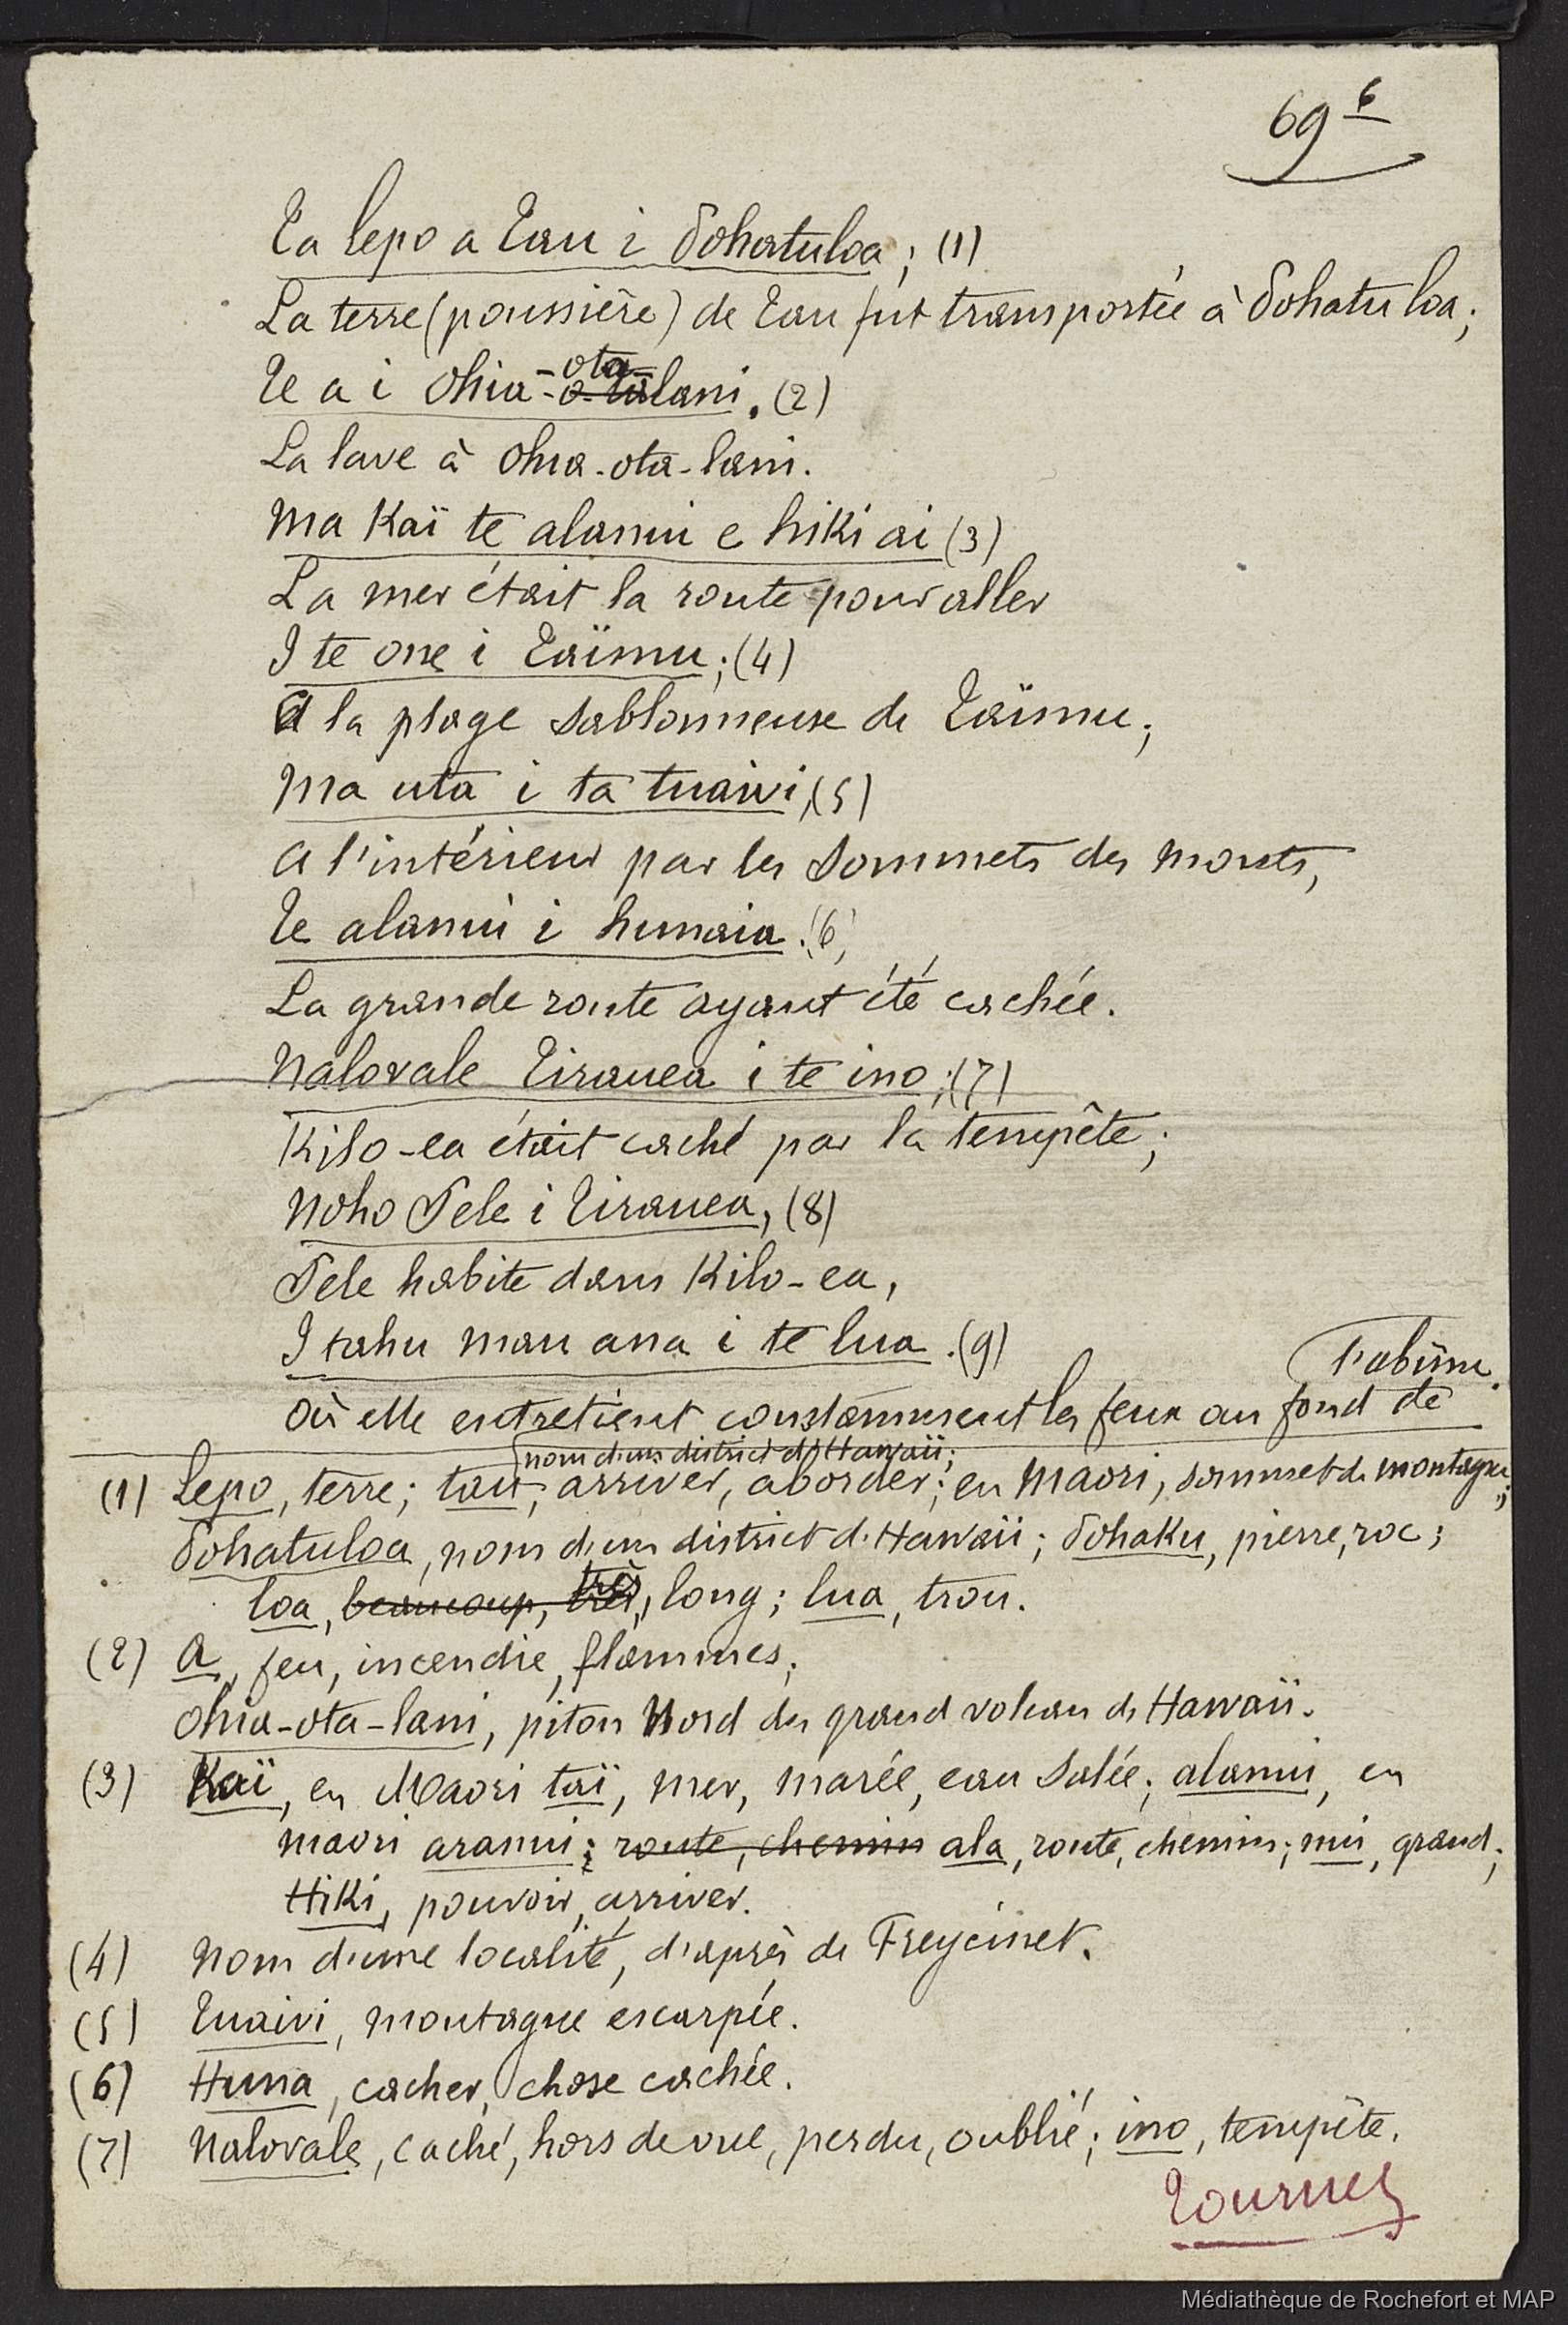 69 6
Ta lepo a Tau i Pohatuloa; (1)
La terre (poussière) de Tau fut transportée à Pohatuloa;
Te a i Ohia-ota-lani. (2)
La lave à Ohia-ota-lani.
Ma Kaï te alanui e hiki ai (3)
La mer était la route pour aller
I te one i Taïmu; (4)
A la plage sablonneuse de Taïmu;
Ma uta i ta tuaivi, (5)
A l'intérieur par les sommets des monts,
Te alanui i hunaia. (6)
La grande route ayant été cachée.
Nalovale Tirauea i te ino; (7)
Kilo-ea était caché par la tempête;
Noho Pele i Tirauea, (8)
Pele habite dans Kilo-ea,
I tahu mau ana i te lua. (9)
Où elle entretient constamment les feux au fond de l'abîme.
nom d'un district d'Hawaïi;
(1) Lepo, terre; tau, arriver, aborder; en Maori, sommet de montagne;
Pohatuloa, nom d'un district d'Hawaïi; Pohaku, pierre, roc;
loa, beaucoup, très, long; lua, trou.
(2) A, feu, incendie, flammes;
Ohia-ota-lani, piton Nord du grand volcan d'Hawaïi.
(3) Kaï, en Maori taï, mer, marée, eau salée; alanui, en
maori aranui; route, chemin ala, route, chemin; nui, grand;
Hiki, pouvoir, arriver.
(4) Nom d'une localité, d'après de Freycinet.
(5) Tuaivi, montagne escarpée.
(6) Huna, cacher, chose cachée.
(7) Nalovale, caché, hors de vue, perdu, oublié; ino, tempête.
Tournez
Médiathèque de Rochefort et MAP